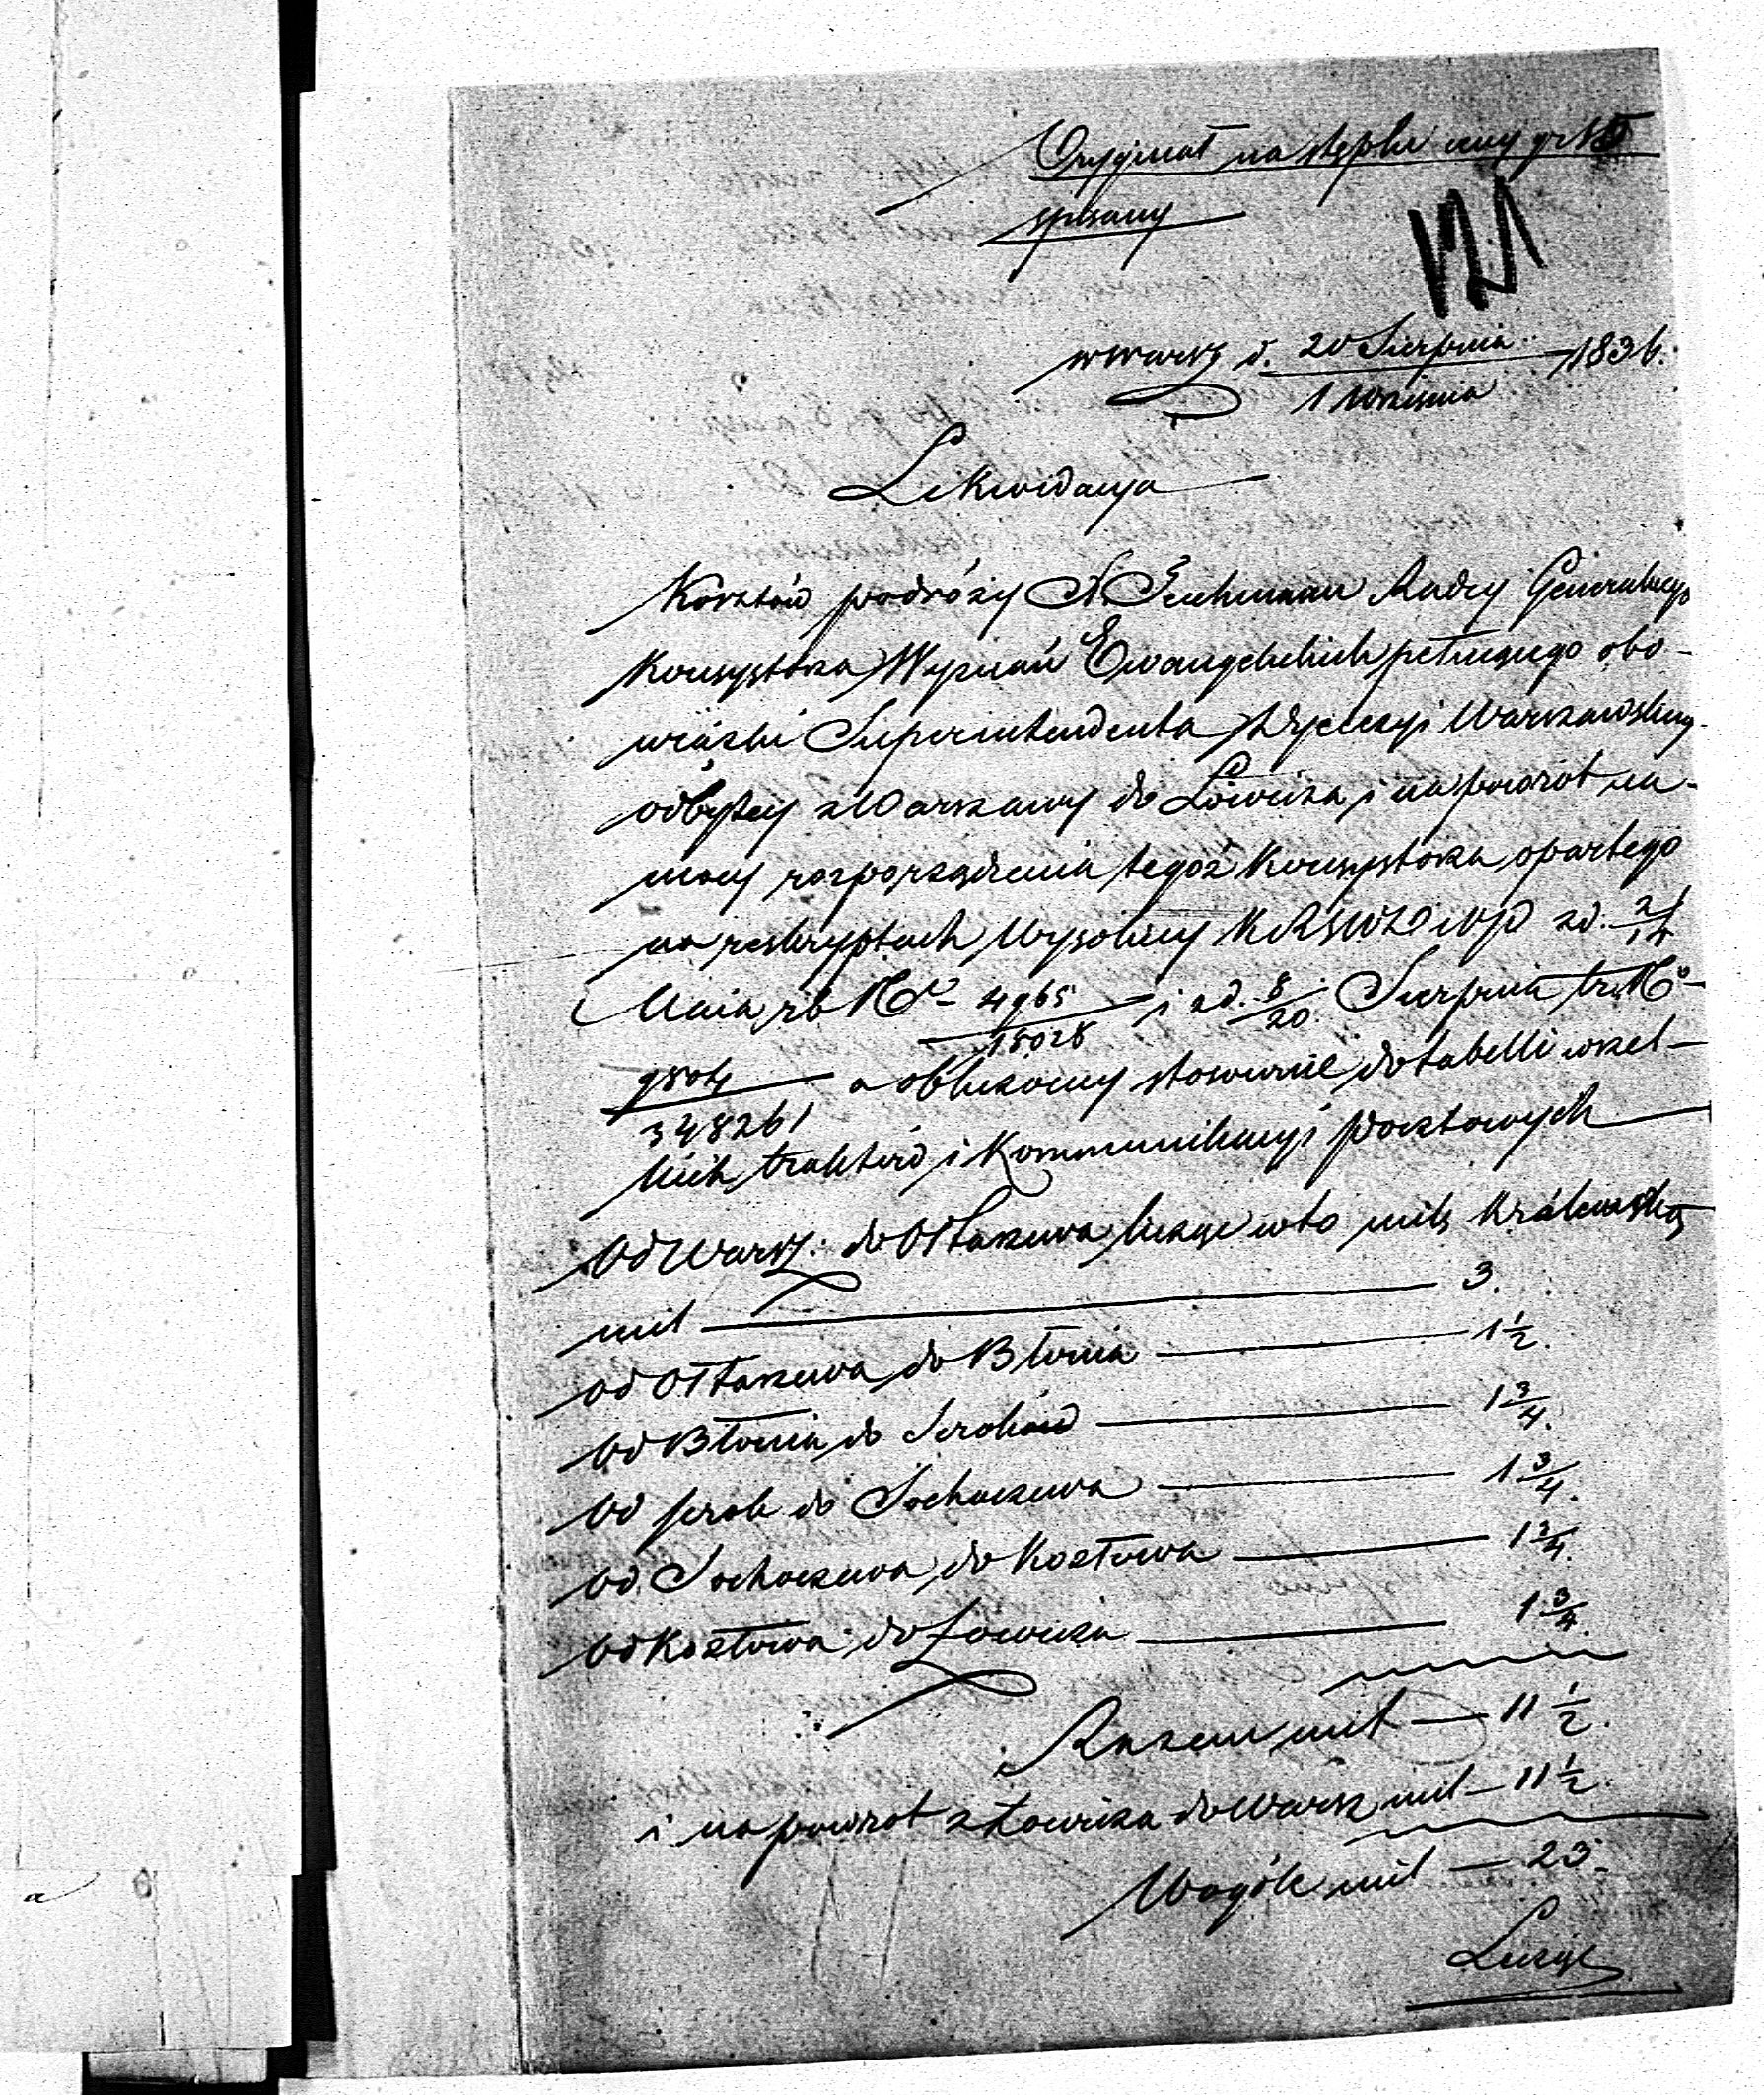 Oryginał na stęplu ceny gr
spisany
121
w Warsz d. 20 Sierpnia 1836.
1 Września
Likwidacya
Kosztów podróży Teichmann Radcy Generalnego
Konsystorza Wyznań Ewangelickich pełniącego obo-
wiązki Superintendenta Dyecezyi Warszawskiey
odbytey z Warszawy do Łowicza i na powrót na-
mocy rozporządzenia tegoż Konsystorza opartego
na reskryptach Wysokiey KRSWD i OP z d. 2/14
Maia rb No 4965/15028 i z d. 8/20 Sierpnia tr. No
9804/348261 a obliczoney stosownie do tabelli wszel-
kich traktów i Kommunikacyi pocztowych
Od Warsz: do Ołtarzewa licząc w to milę Królewską
mil 3.
od Ołtarzewa do Błonia 1 1/2.
Od Błonia do Seroków 1 3/4.
Od Serok do Sochaczewa 1 3/4.
Od Sochaczewa do Kozłowa 1 3/4.
Od Kozłowa do Łowicza 1 3/4.
Razem mil 11 1/2.
i na powrót z Łowicza do Warsz mil 11 1/2.
Wogóle mil 23.
Licząc